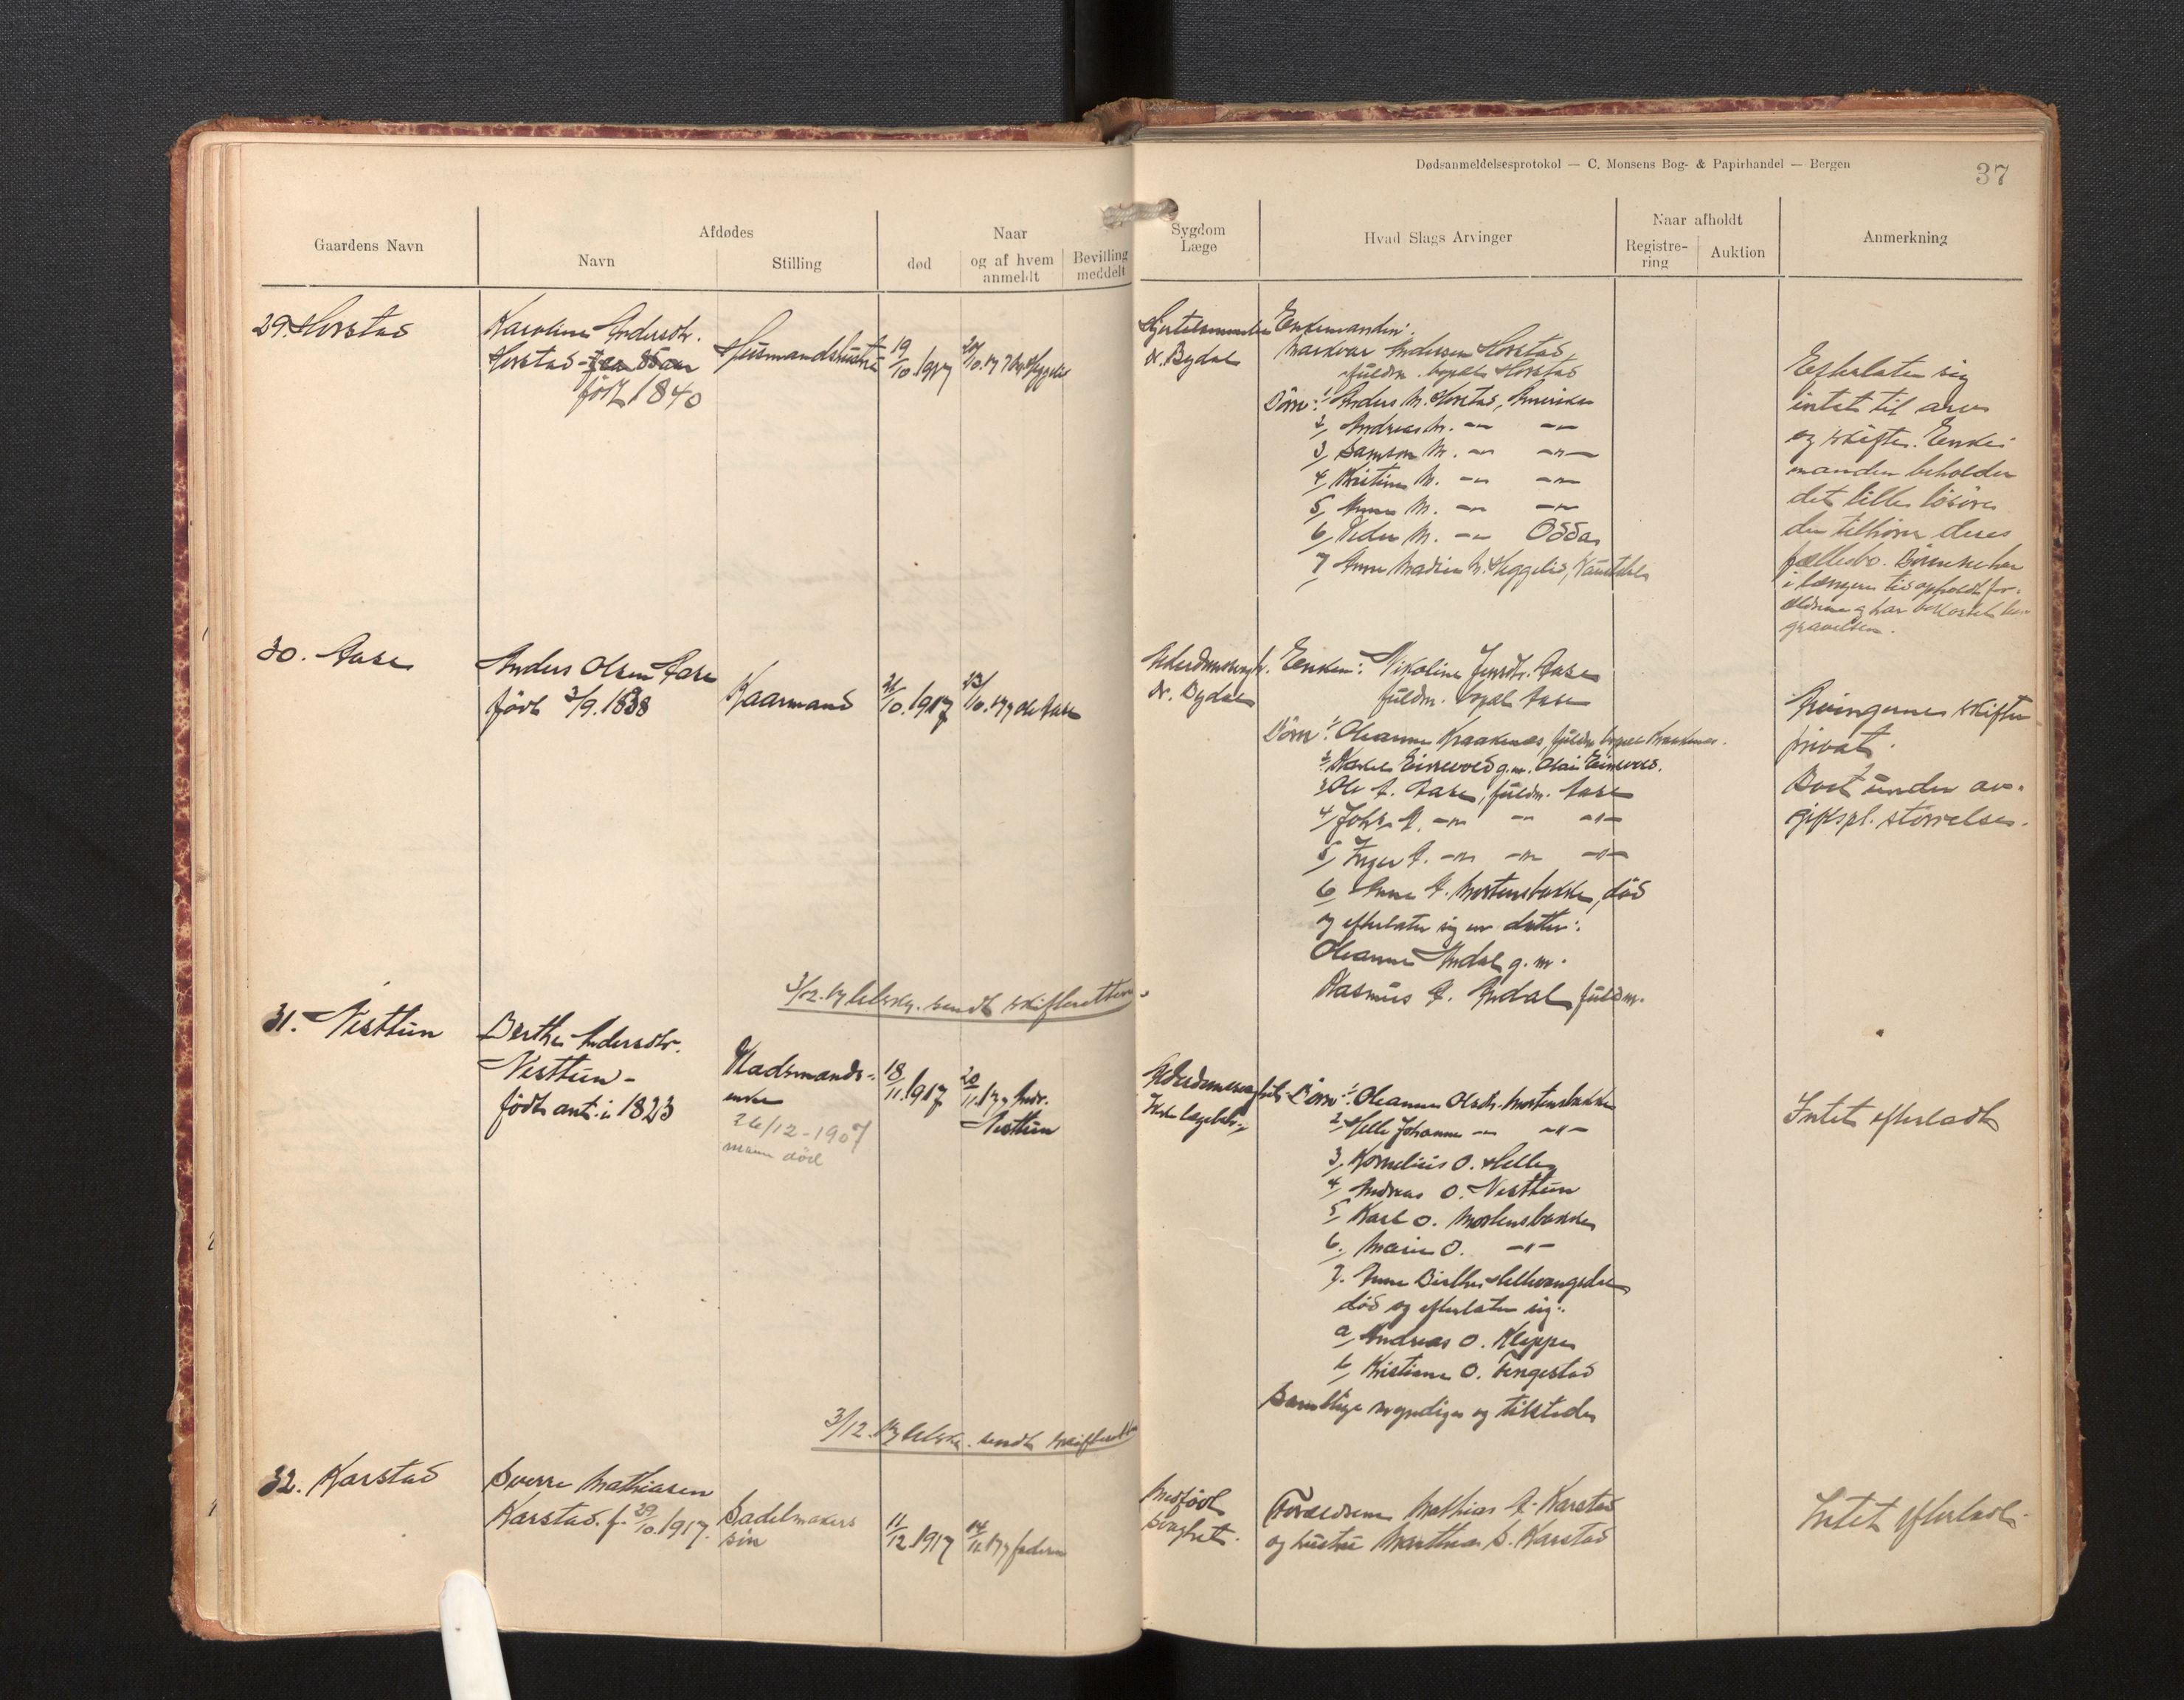 Dødsanmeldelsesprotokol — C. Monsens Bog- & Papirhandel — Bergen
37
Gaardens Navn
Afdødes
Navn
Stilling
Naar
død
og af hvem anmeldt
Bevilling meddelt
Sygdom
Læge
Hvad Slags Arvinger
Naar afholdt
Registre-
ring
Auktion
Anmerkning
29. Horstad
Karoline Andersdtr.
Horstad
født 1840
Husmandshustru
19/10.1917
dr. Bydal
Enkemanden:
Andersen Horstad
fuldm. bopæl Horstad
Børn: 1, Anders M. Horstad, Amerika
2, Andreas M. -"- -"-
3, Samson M. -"- -"-
4, Kristine M. -"- -"-
5, Anna M. -"- -"-
6, Peder M. -"- Odda
7, Anne Marie M. Heggelid,
Efterlater sig
intet til arv
og skifte. Enke-
manden beholder
det lille løsøre
der tilhører deres
fællesbo. Børnene har
i længere tid opholdt for-
ældrene og har bekostet be-
gravelsen.
30. Aase
Anders Olsen Aase
født 3/9.1838
Kaarmand
21/10.1917
23/10.17 Ole Aase
Alderdomssvagh.
dr. Bydal
Enken: Nikoline Jensdtr. Aase
fuldm. bopæl Aase
Børn: 1, Oleanne Kraakenes, fuldm. bopæl Kraakenes.
2, Eimevold g.m. Olai Eimevold.
3, Ole A. Aase, fuldm. Aase
4, Johs. A. -"- -"- -"-
5, Inger A. -"- -"- -"-
6, Anne A. Mortensbakke, død
og efterlater sig en datter:
Oleanne Indal g.m.
Rasmus A. Indal fuldm.
Arvingerne skifter
privat.
Boet under av-
giftspl. størrelse.
3/12.17 sendt skifteretten.
31. Nesttun
Berthe Andersdtr.
Nesttun
født ant. i 1823
Pladsmands-
enke
26/12-1907
mann død
18/11.1917
20/11.17 Andr.
Nesttun
Alderdomssvaghet
Ikke lægebeh.
Børn: 1, Oleanne Olsdtr. Mortensbakke
2, Pelle Johanne -"- -"-
3, Kornelius O. Helle
4, Andreas O. Nesttun
5, Karl O. Mortensbakke
6, Marie O. -"-
7. Anne Berthe
død og efterlater sig:
a, Andreas O. Kleppe
b, Kristiane O. Tengestad
Samtlige myndige og tilstede
Intet efterladt
3/12.17 sendt skifteretten
32. Karstad
Sverre Mathiasen
Karstad. f. 29/10.1917.
Sadelmakers
søn
11/12.1917
14/12.17 faderen
Medfødt
svaghet.
Forældrene Mathias A. Karstad
og hustru Marthea S. Karstad
Intet efterladt.